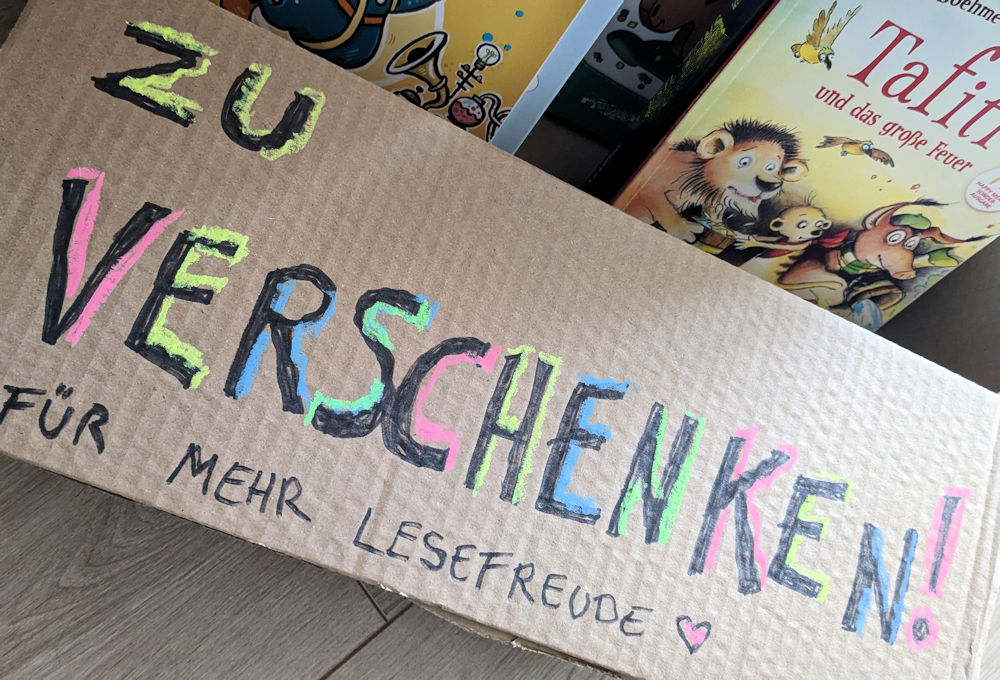 ZU
VERSCHENKEN!
FÜR MEHR LESEFREUDE
Tafiti
und das große Feuer